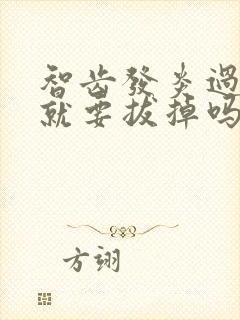 智齿發炎過
就要拔掉吗
方翊